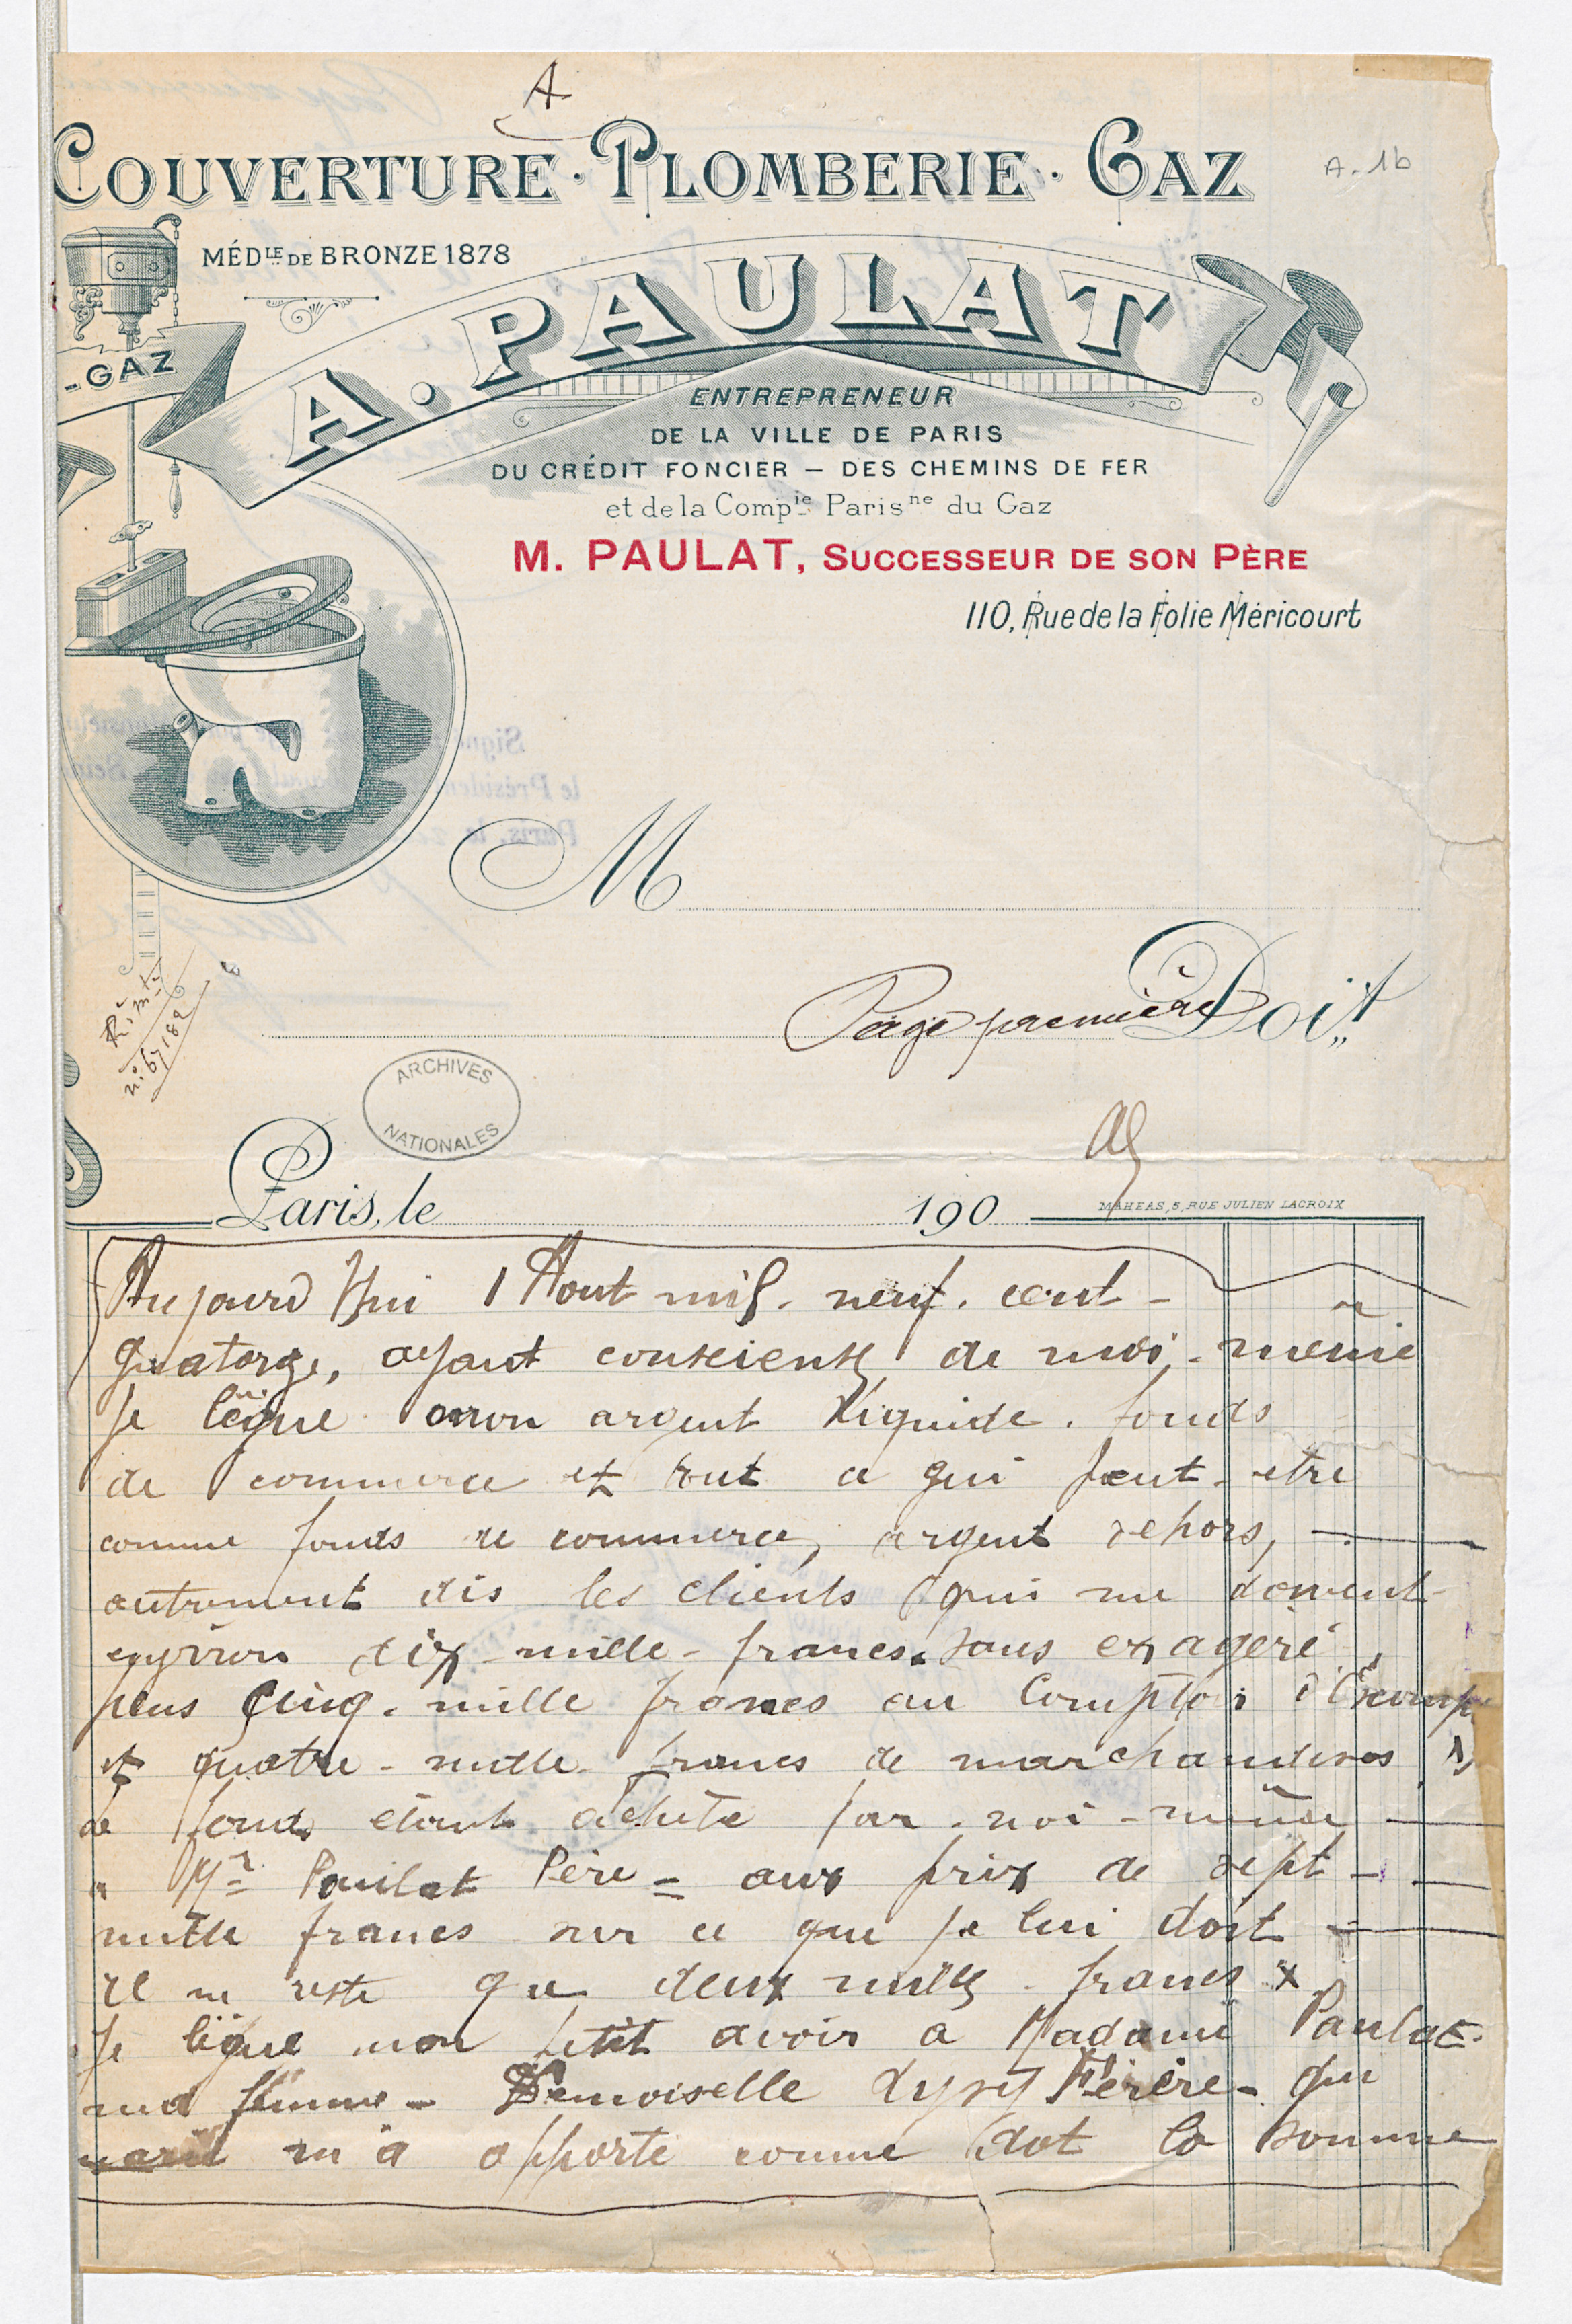 A
COUVERTURE · PLOMBERIE · GAZ
A.1b
MÉDLE DE BRONZE 1878
-GAZ
A. PAULAT
ENTREPRENEUR
DE LA VILLE DE PARIS
DU CRÉDIT FONCIER — DES CHEMINS DE FER
et de la Compie Parisne du Gaz
M. PAULAT, SUCCESSEUR DE SON PÈRE
110, Rue de la Folie Méricourt
M
Page première Doit
n: 67182
ARCHIVES NATIONALES
Paris, le 190
MAHEAS, 5, RUE JULIEN LACROIX
Aujourd Hui 1 Aout mil. neuf. cent -
quatorze, ayant consciense de moi-même
Je lègue mon argent liquide. fonds
de commerce et tout ce qui peut-etre
comme fonds de commerce, argent dehors,
autrement dis les clients qui me doivent
environ dix-mille-francs. sans exagéré,
plus Cinq. mille francs au Comptoir d'Escompte
et quatre-mille francs de marchandises
le fond etant acheté par-moi-même
a Mr Paulat Père = aux prix de sept -
mille francs sur ce que je lui doit
il ne reste que deux mille francs x
Je lègue mon petit avoir a Madame Paulat.
ma femme - Demoiselle Lysy Férère - qui
marié m'a apporté comme dot la somme